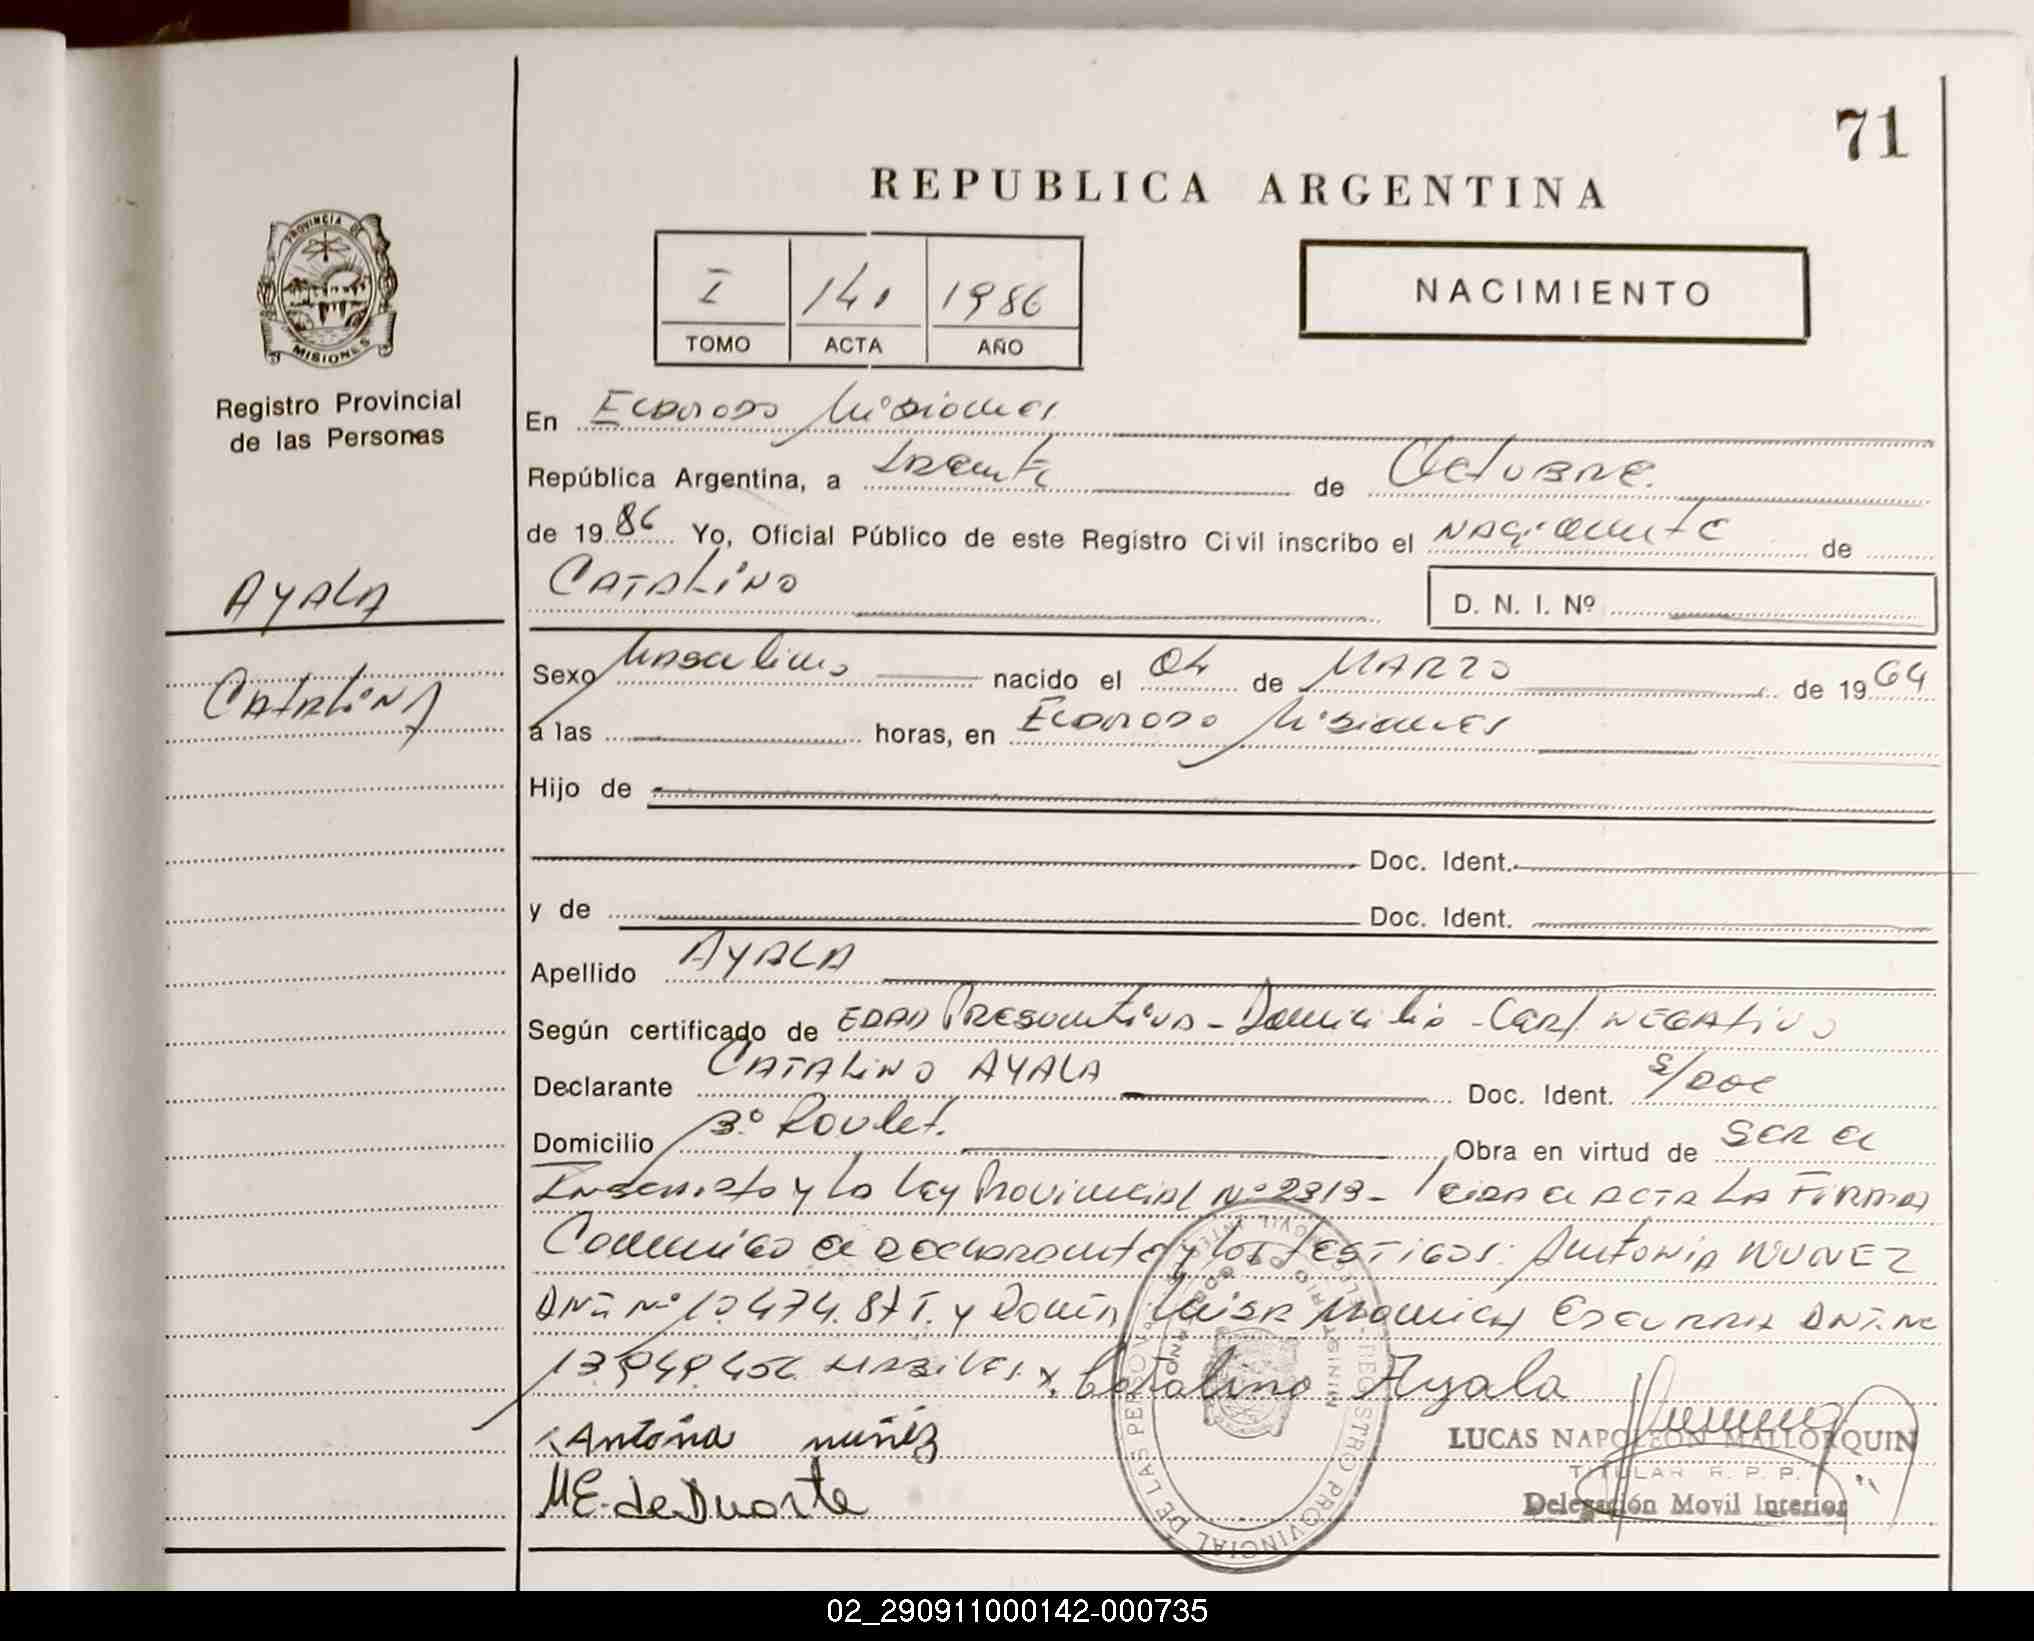 71
REPUBLICA ARGENTINA
PROVINCIA DE
MISIONES
Registro Provincial
de las Personas
I 141 1986
TOMO ACTA AÑO
NACIMIENTO
En Eldorado Misiones
República Argentina, a treinta de Octubre.
de 1986 Yo, Oficial Público de este Registro Civil inscribo el nacimiento de
CATALINO
D. N. I. Nº
AYALA
CATALINA
Sexo Masculino nacido el 04 de MARZO de 1964
a las horas, en Eldorado Misiones
Hijo de
Doc. Ident.
y de Doc. Ident.
Apellido AYALA
Según certificado de EDAD Presuntiva - Domicilio - Cert NEGAtivo
Declarante CATALINO AYALA Doc. Ident. S/Doc
Domicilio Bº Roulet. Obra en virtud de SER el
Inscripto y la Ley Provincial Nº 2313 - leida el ACTA LA FIRMAN
Conmigo el declarante y los TESTIGOS: Antonia NUNEZ
DNI Nº y
Antoña nuñiz
Catalino Ayala
M E. de Duarte
LUCAS NAPOLEON MALLORQUIN
TITULAR R. P. P.
Delegación Movil Interior
REGISTRO PROVINCIAL DE LAS PERSONAS
02_290911000142-000735